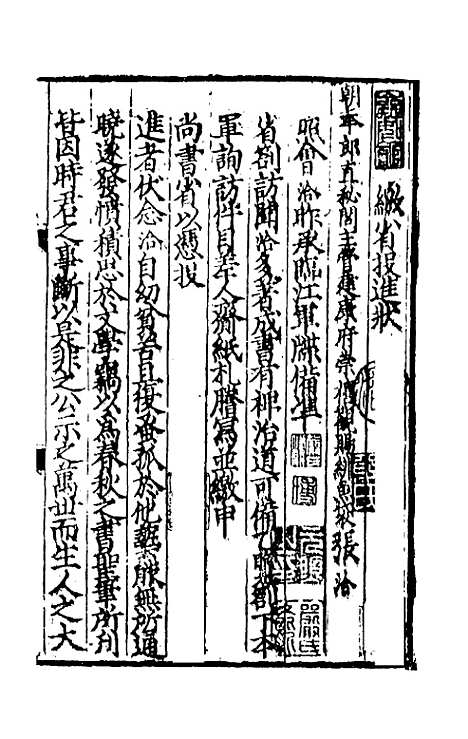 繳省投進狀
朝奉郎直秘閣主管建康府崇禧觀賜緋魚袋張洽
照會洽昨承臨江軍牒備準
省劄訪聞洽多著成書有裨治道可備乙覽劄下本
軍詢訪件目差人齎紙札謄寫並繳申
尚書省以憑投
進者伏念洽自幼貧苦且復蚤孤於他藝能無所通
曉遂發憤積思於文學竊以爲春秋之書聖筆所刋
皆因時君之事斷以是非之公示之萬世而生人之大